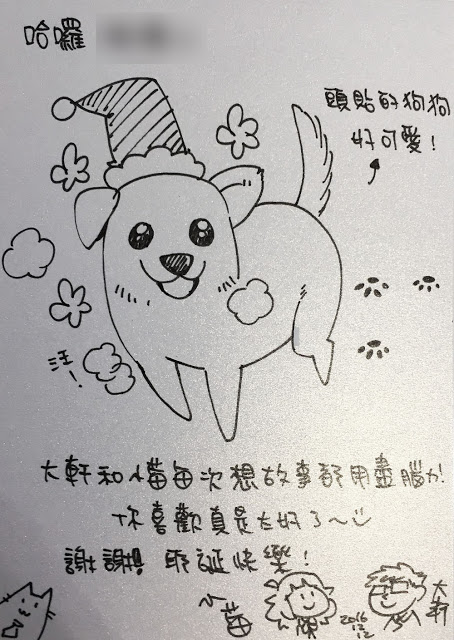 哈囉
頭貼的狗狗
好可愛！
汪！
大軒和小莓每次想故事都用盡腦力！
你喜歡真是太好了～
謝謝 耶誕快樂！
小莓
2016
12
大軒